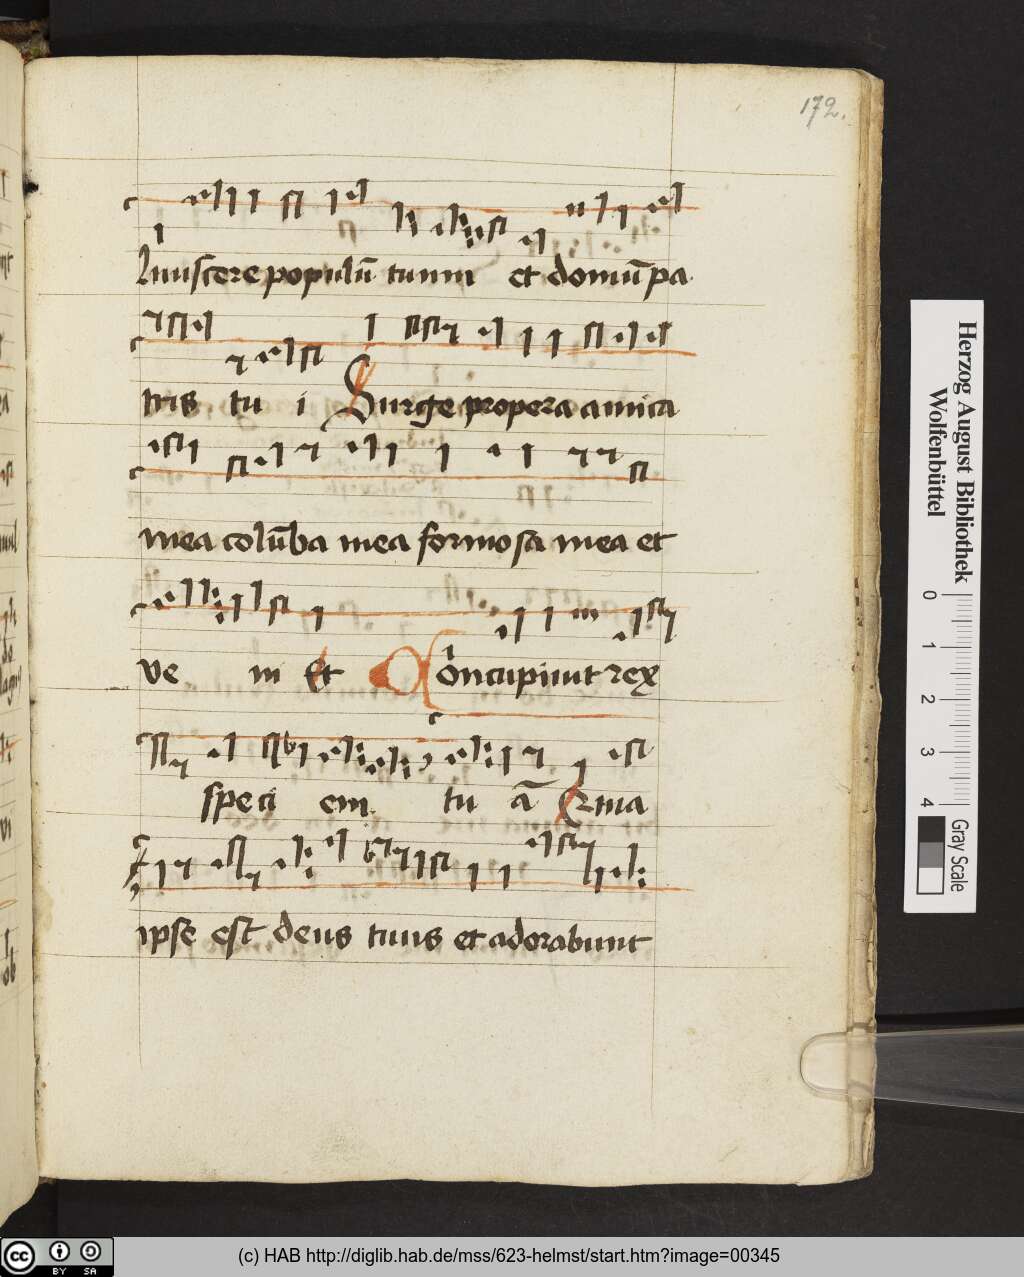 172.
liuiscere populū tuum et domū pa
tris tu i Surge propera amica
mea colūba mea formosa mea et
ve ni Et Concupiuit rex
speci em tu ā Qma
ipse est deus tuus et adorabunt
Herzog August Bibliothek
Wolfenbüttel
0 1 2 3 4
Gray Scale
cc BY SA
(c) HAB http://diglib.hab.de/mss/623-helmst/start.htm?image=00345